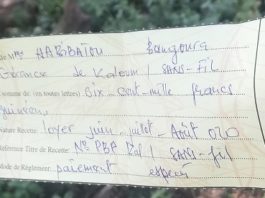 de Mr HABBATOU Bangoura
Gérance de Kaloum / SANS-FIL
Somme de: (en toutes lettres) Six-cent-mille francs
guinéens
Nature Recette: loyer juin-juillet-Août 020
Référence Titre de Recette: N° PBP / SANS-fil
Mode de Règlement: paiement espece